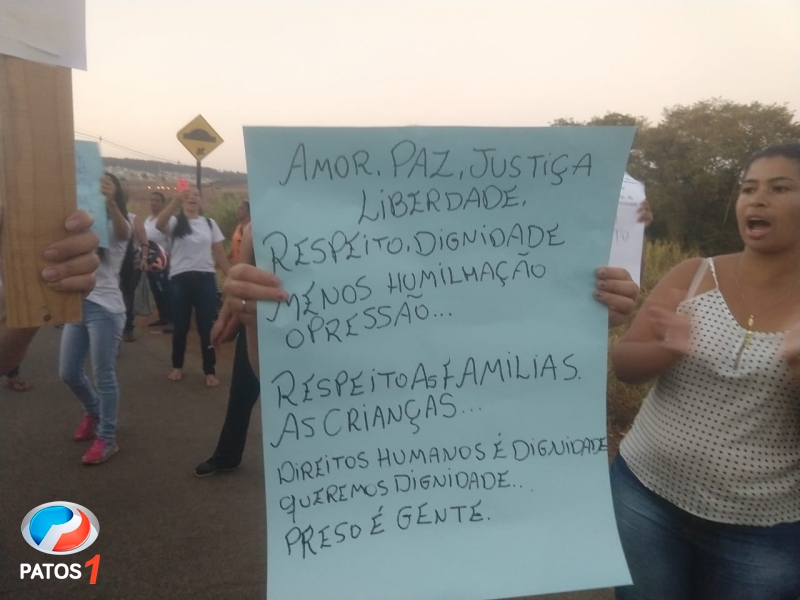 AMOR, PAZ, JUSTIÇA
LIBERDADE.
RESPEITO, DIGNIDADE
MENOS HUMILHAÇÃO
OPRESSÃO...
RESPEITO AS FAMILIAS.
AS CRIANÇAS...
DIREITOS HUMANOS É DIGNIDADE
QUEREMOS DIGNIDADE...
PRESO É GENTE.
PATOS 1